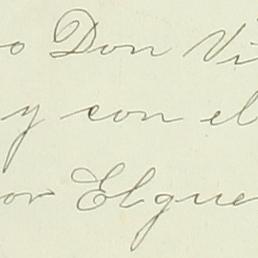 o Don Vi
y con el
or Elgue